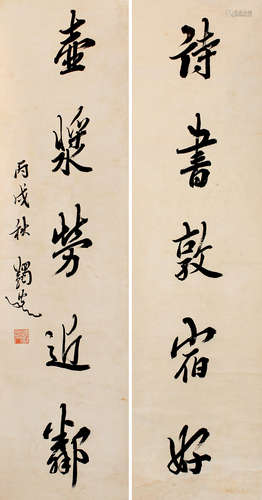 詩書敦宿好
壺漿勞近鄰
丙戌秋